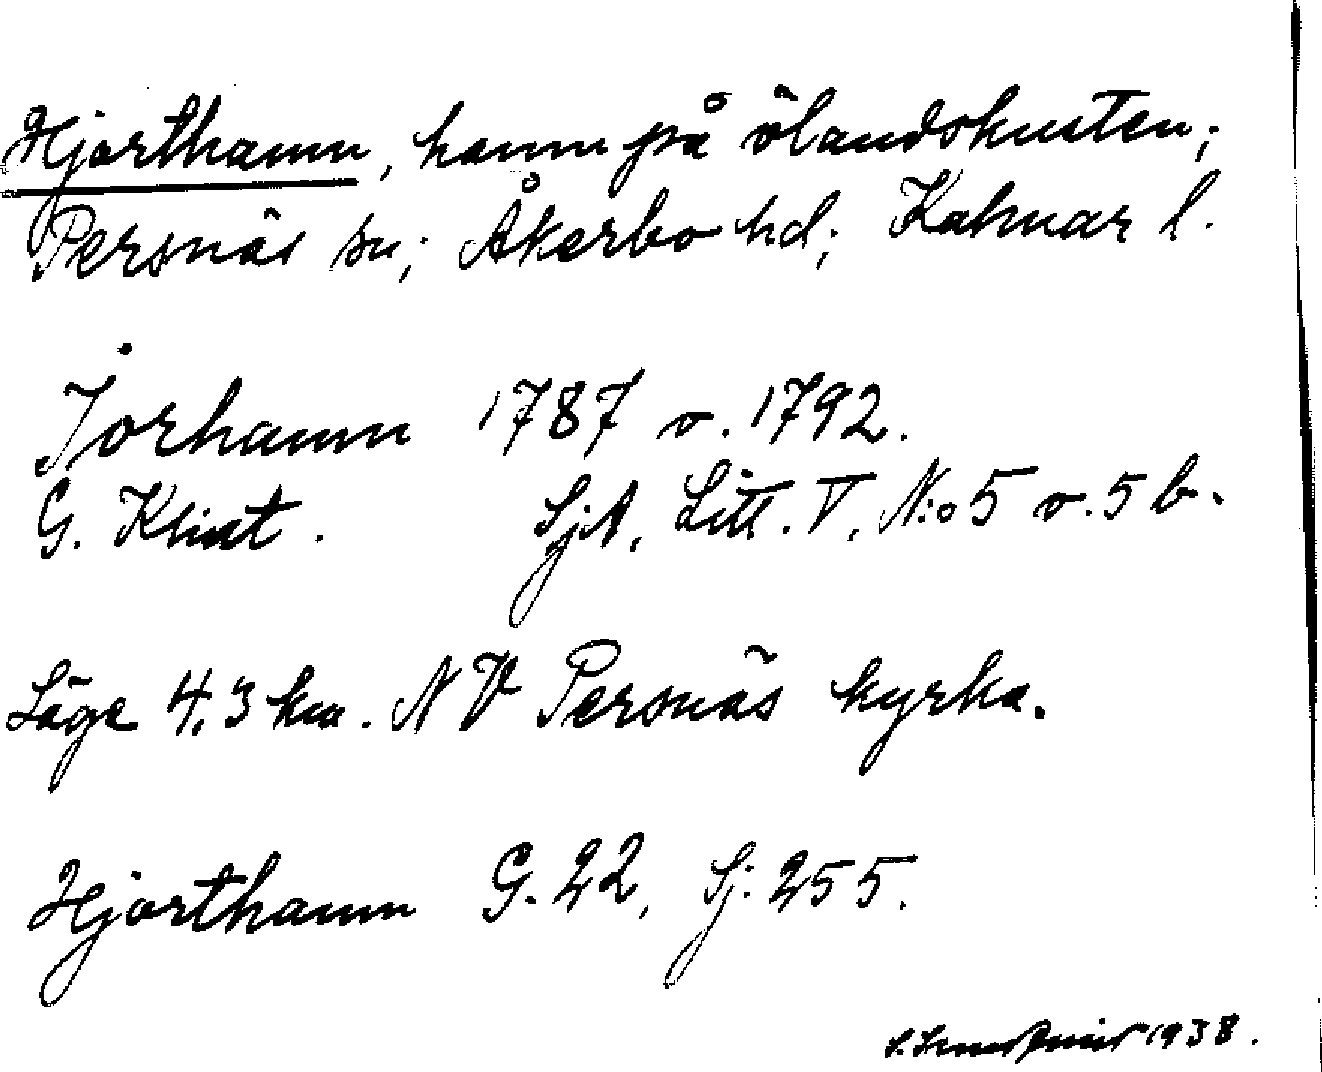 Hjorthamn, hamn på ölandskusten;
Persnäs sn; Åkerbo hd; Kalmar l.
Jorhamn 1787 o. 1792.
G. Klint. SjA, Litt. V, N:o 5 o. 5 b.
Läge 4,3 km. NV Persnäs kyrka.
Hjorthamn G. 22, Sj. 255.
1938.